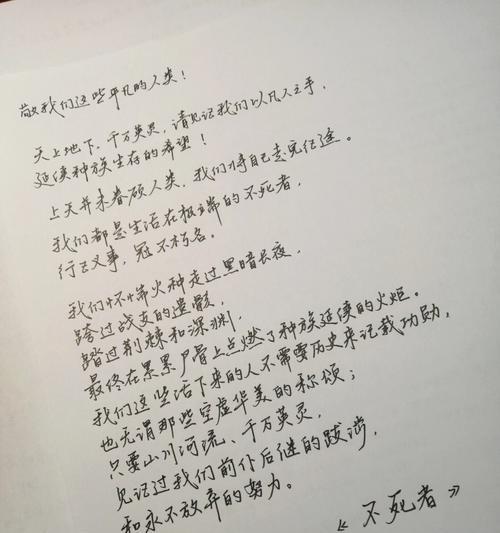 敬我们这些平凡的人类！
天上地下，千万英灵，请见证我们以凡人之手，
延续种族生存的希望！
上天并未眷顾人类，我们将自己走完征途。
我们都是生活在极端的不死者，
行正义事，冠不朽名。
我们怀揣火种走过黑暗长夜，
跨过战友的遗骸，
踏过荆棘和深渊，
最终在累累尸骨上点燃了种族延续的火炬。
我们这些活下来的人不需要历史来记载功勋，
也无谓那些空虚华美的称颂；
只要山川河流、千万英灵，
见证过我们前仆后继的跋涉，
和永不放弃的努力。
《不死者》